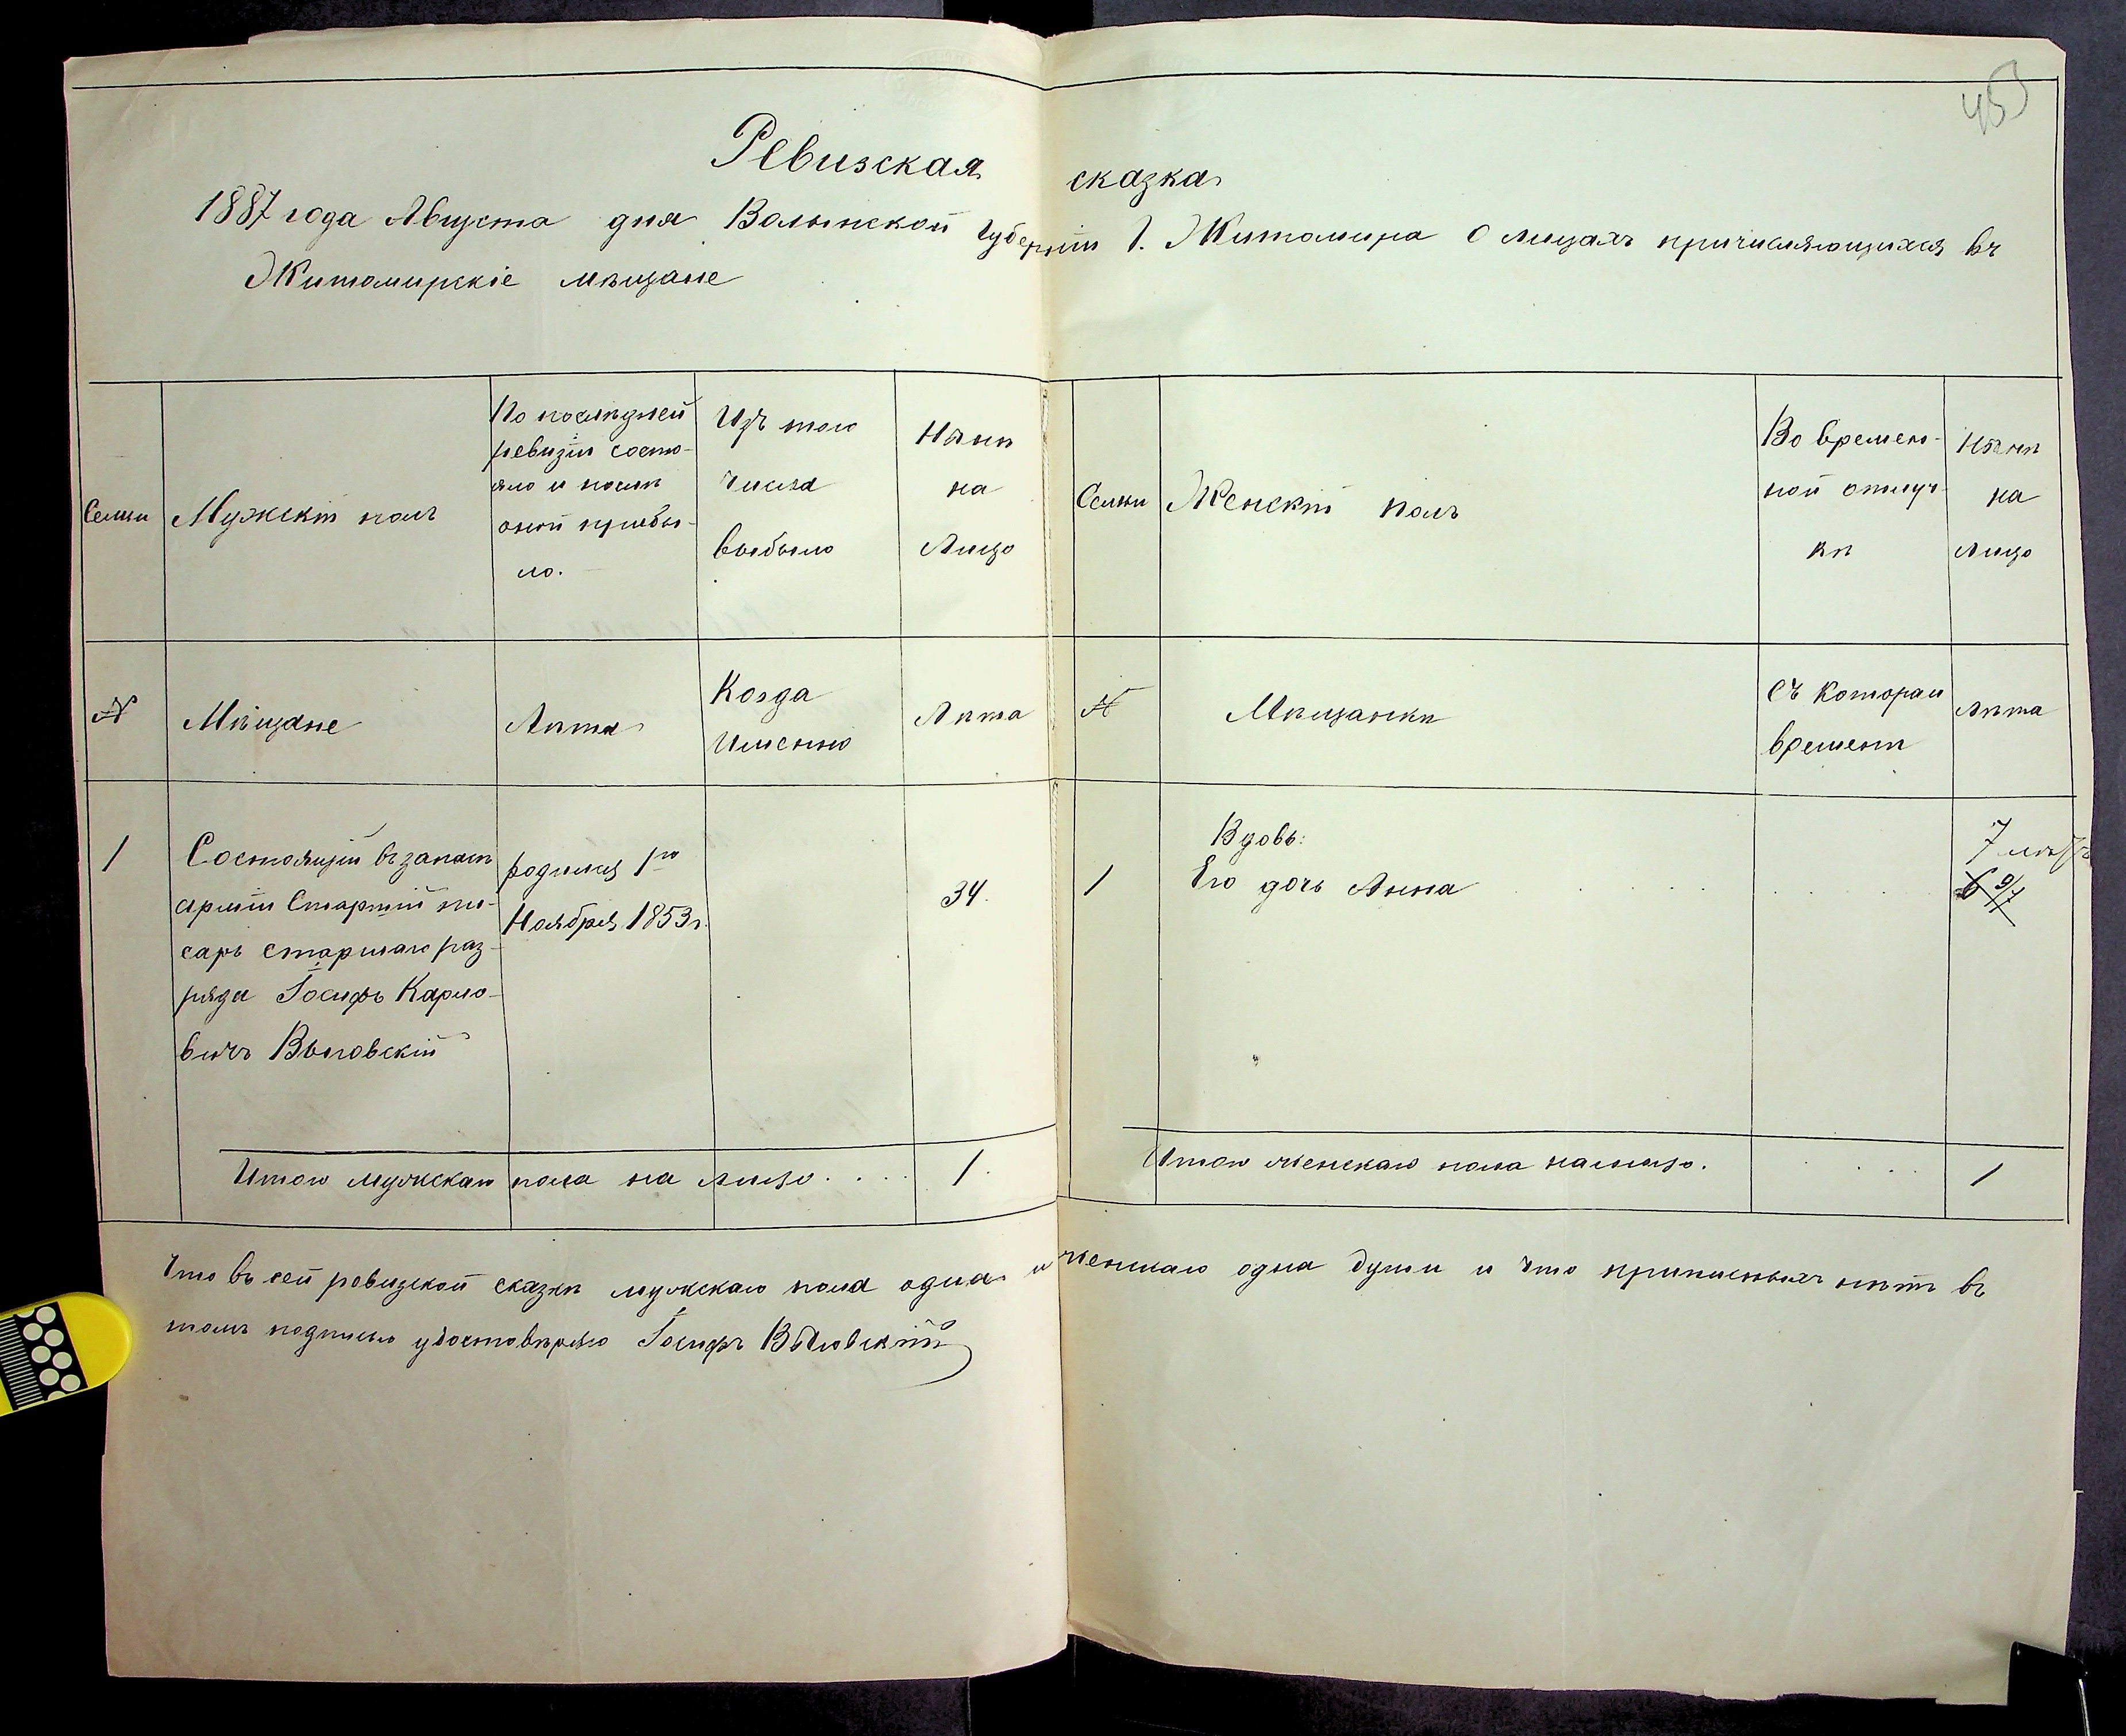 45
Ревизская сказка
1887 года Августа дня Волынской губерніи г. Житомира О лицахъ причисляющихся въ
Житомирскіе мѣщане
Семьи
Мужскій полъ
По послѣдней
ревизіи состо-
яло и послѣ
оной прибы-
ло.
Изъ того
числа
выбыло
Нынѣ
на
Лицо
Семьи
Женскій полъ
Во времен-
ной отлуч-
кѣ
Нынѣ
на
лицо
№
Мѣщане
Лѣта
Когда
Именно
Лѣта
№
Мѣщанки
Съ котораи
времени
Лѣта
1
Состоящій въ запасѣ
арміи Старшій пи-
сарь старшаго раз-
ряда Іосифъ Карло-
вичъ Выговскій
родился 1го
Ноября 1853 г.
34.
1
Вдовъ:
Его дочь Анна
7
6 9/7
Итого мужскаго пола на лицо....
1.
Итого женскаго пола налицо.
1
Что въ сей ревизской сказкѣ мужскаго пола одна и женскаго одна души и что прописныхъ нѣтъ въ
томъ подписью удостовѣряю Іосифъ Выговскій